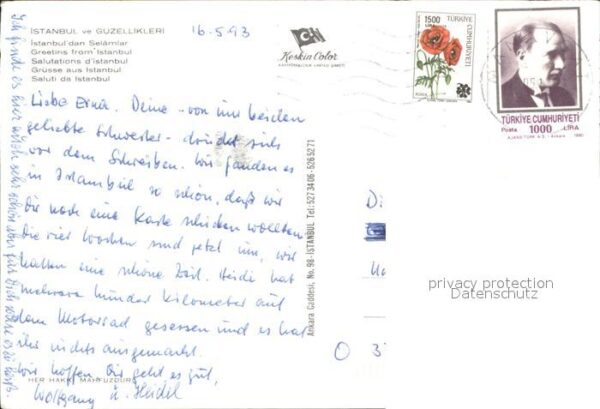 16.5.93
İSTANBUL ve GÜZELLİKLERİ
İstanbul'dan Selâmlar
Greetins from İstanbul
Salutations d'istanbul
Grüsse aus Istanbul
Saluti da Istanbul
Keskin Color
1500
TÜRKİYE
CUMHURİYETİ
TÜRKİYE CUMHURİYETİ
Posta 1000 LİRA
Liebe Erna. Deine - von uns beiden
geliebte Schwester - drückt sich
vor dem Schreiben. Wir fanden es
in Istambul so schön, daß wir
Dir noch eine Karte schicken wollten
Die vier Wochen sind jetzt um, wir
hatten eine schöne Zeit. Heidi hat
mehrere hundert Kilometer auf
dem Motorrad gesessen und es hat
ihr nichts ausgemacht.
Wir hoffen Dir geht es gut,
Wolfgang u. Heidi
Ich finde es hier auch sehr schön aber für Dich wäre es zu heiß.
Ankara Caddesi, No. 98 - İSTANBUL Tel: 5273406-5265271
HER HAKKI MAHFUZDUR
privacy protection
Datenschutz